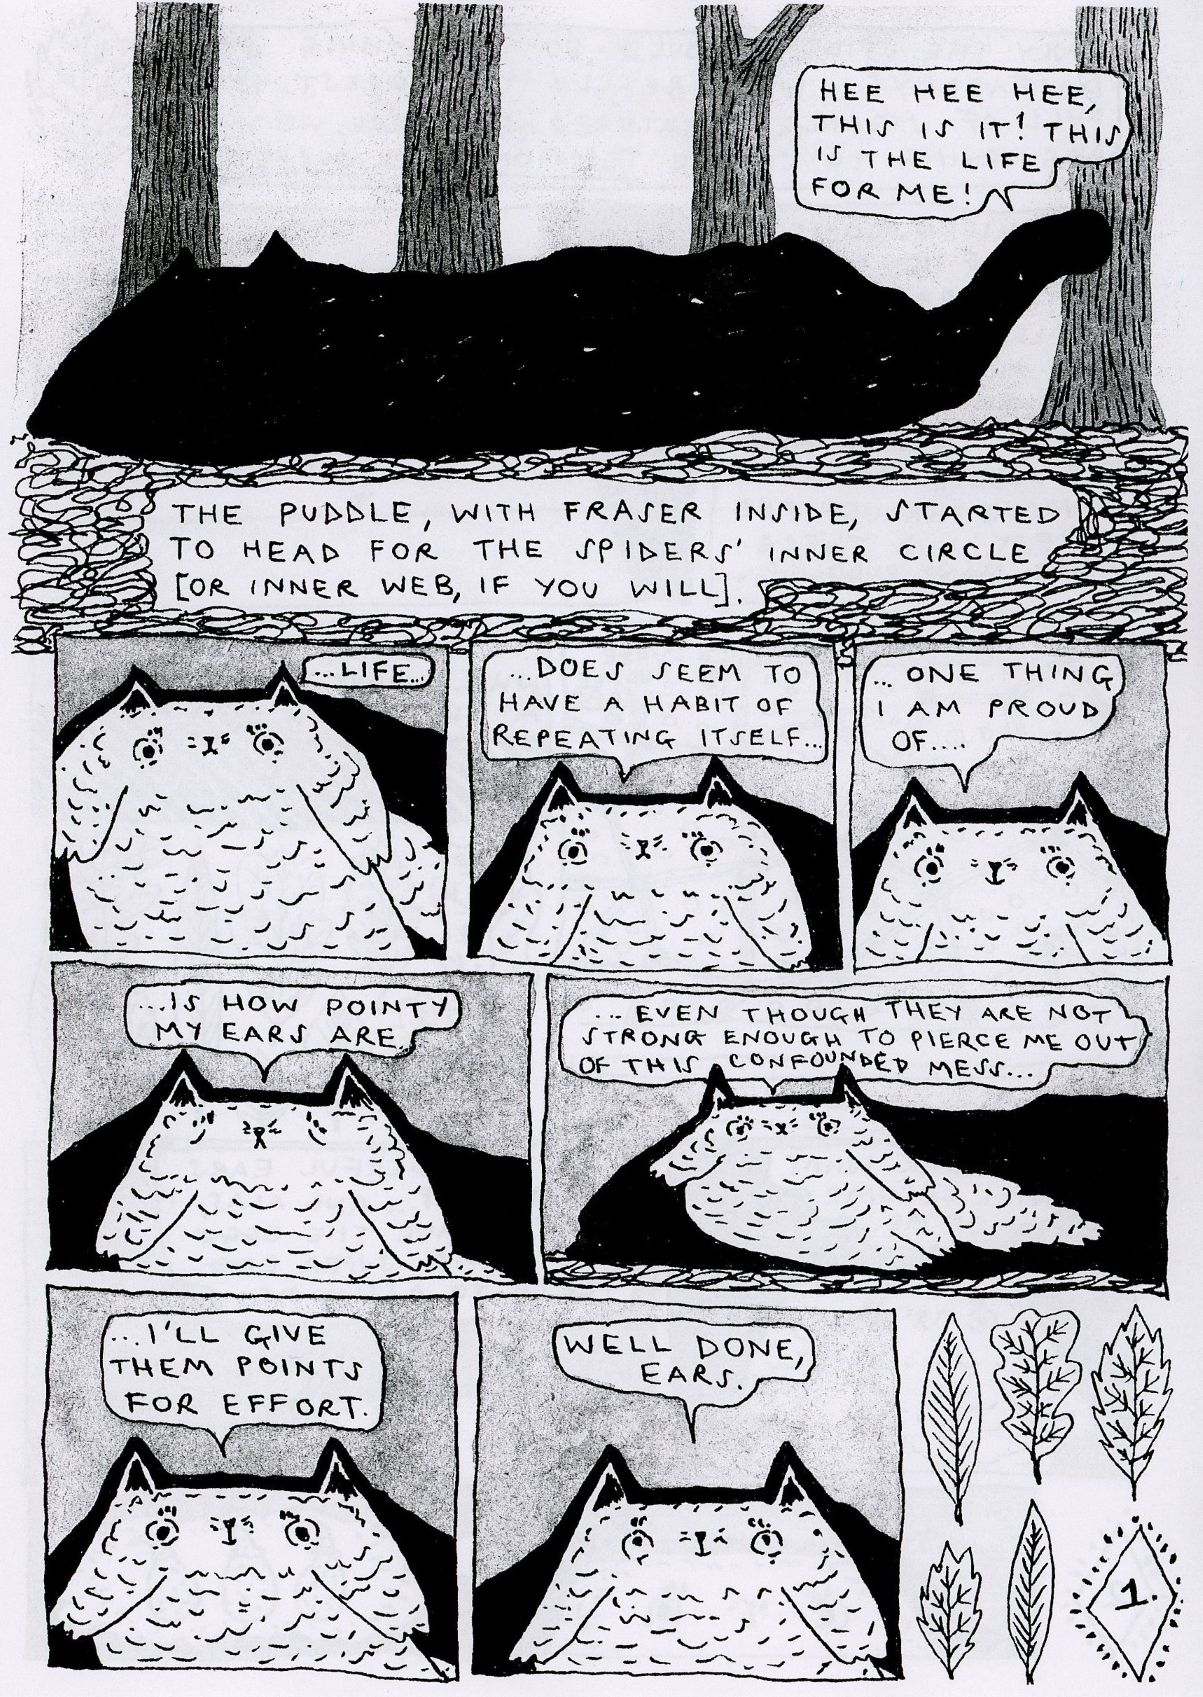 HEE HEE HEE,
THIS IS IT! THIS
IS THE LIFE
FOR ME!
THE PUDDLE, WITH FRASER INSIDE, STARTED
TO HEAD FOR THE SPIDERS' INNER CIRCLE
[OR INNER WEB, IF YOU WILL].
...LIFE...
...DOES SEEM TO
HAVE A HABIT OF
REPEATING ITSELF...
... ONE THING
I AM PROUD
OF....
...IS HOW POINTY
MY EARS ARE.
... EVEN THOUGH THEY ARE NOT
STRONG ENOUGH TO PIERCE ME OUT
OF THIS CONFOUNDED MESS...
...I'LL GIVE
THEM POINTS
FOR EFFORT.
WELL DONE,
EARS.
1.